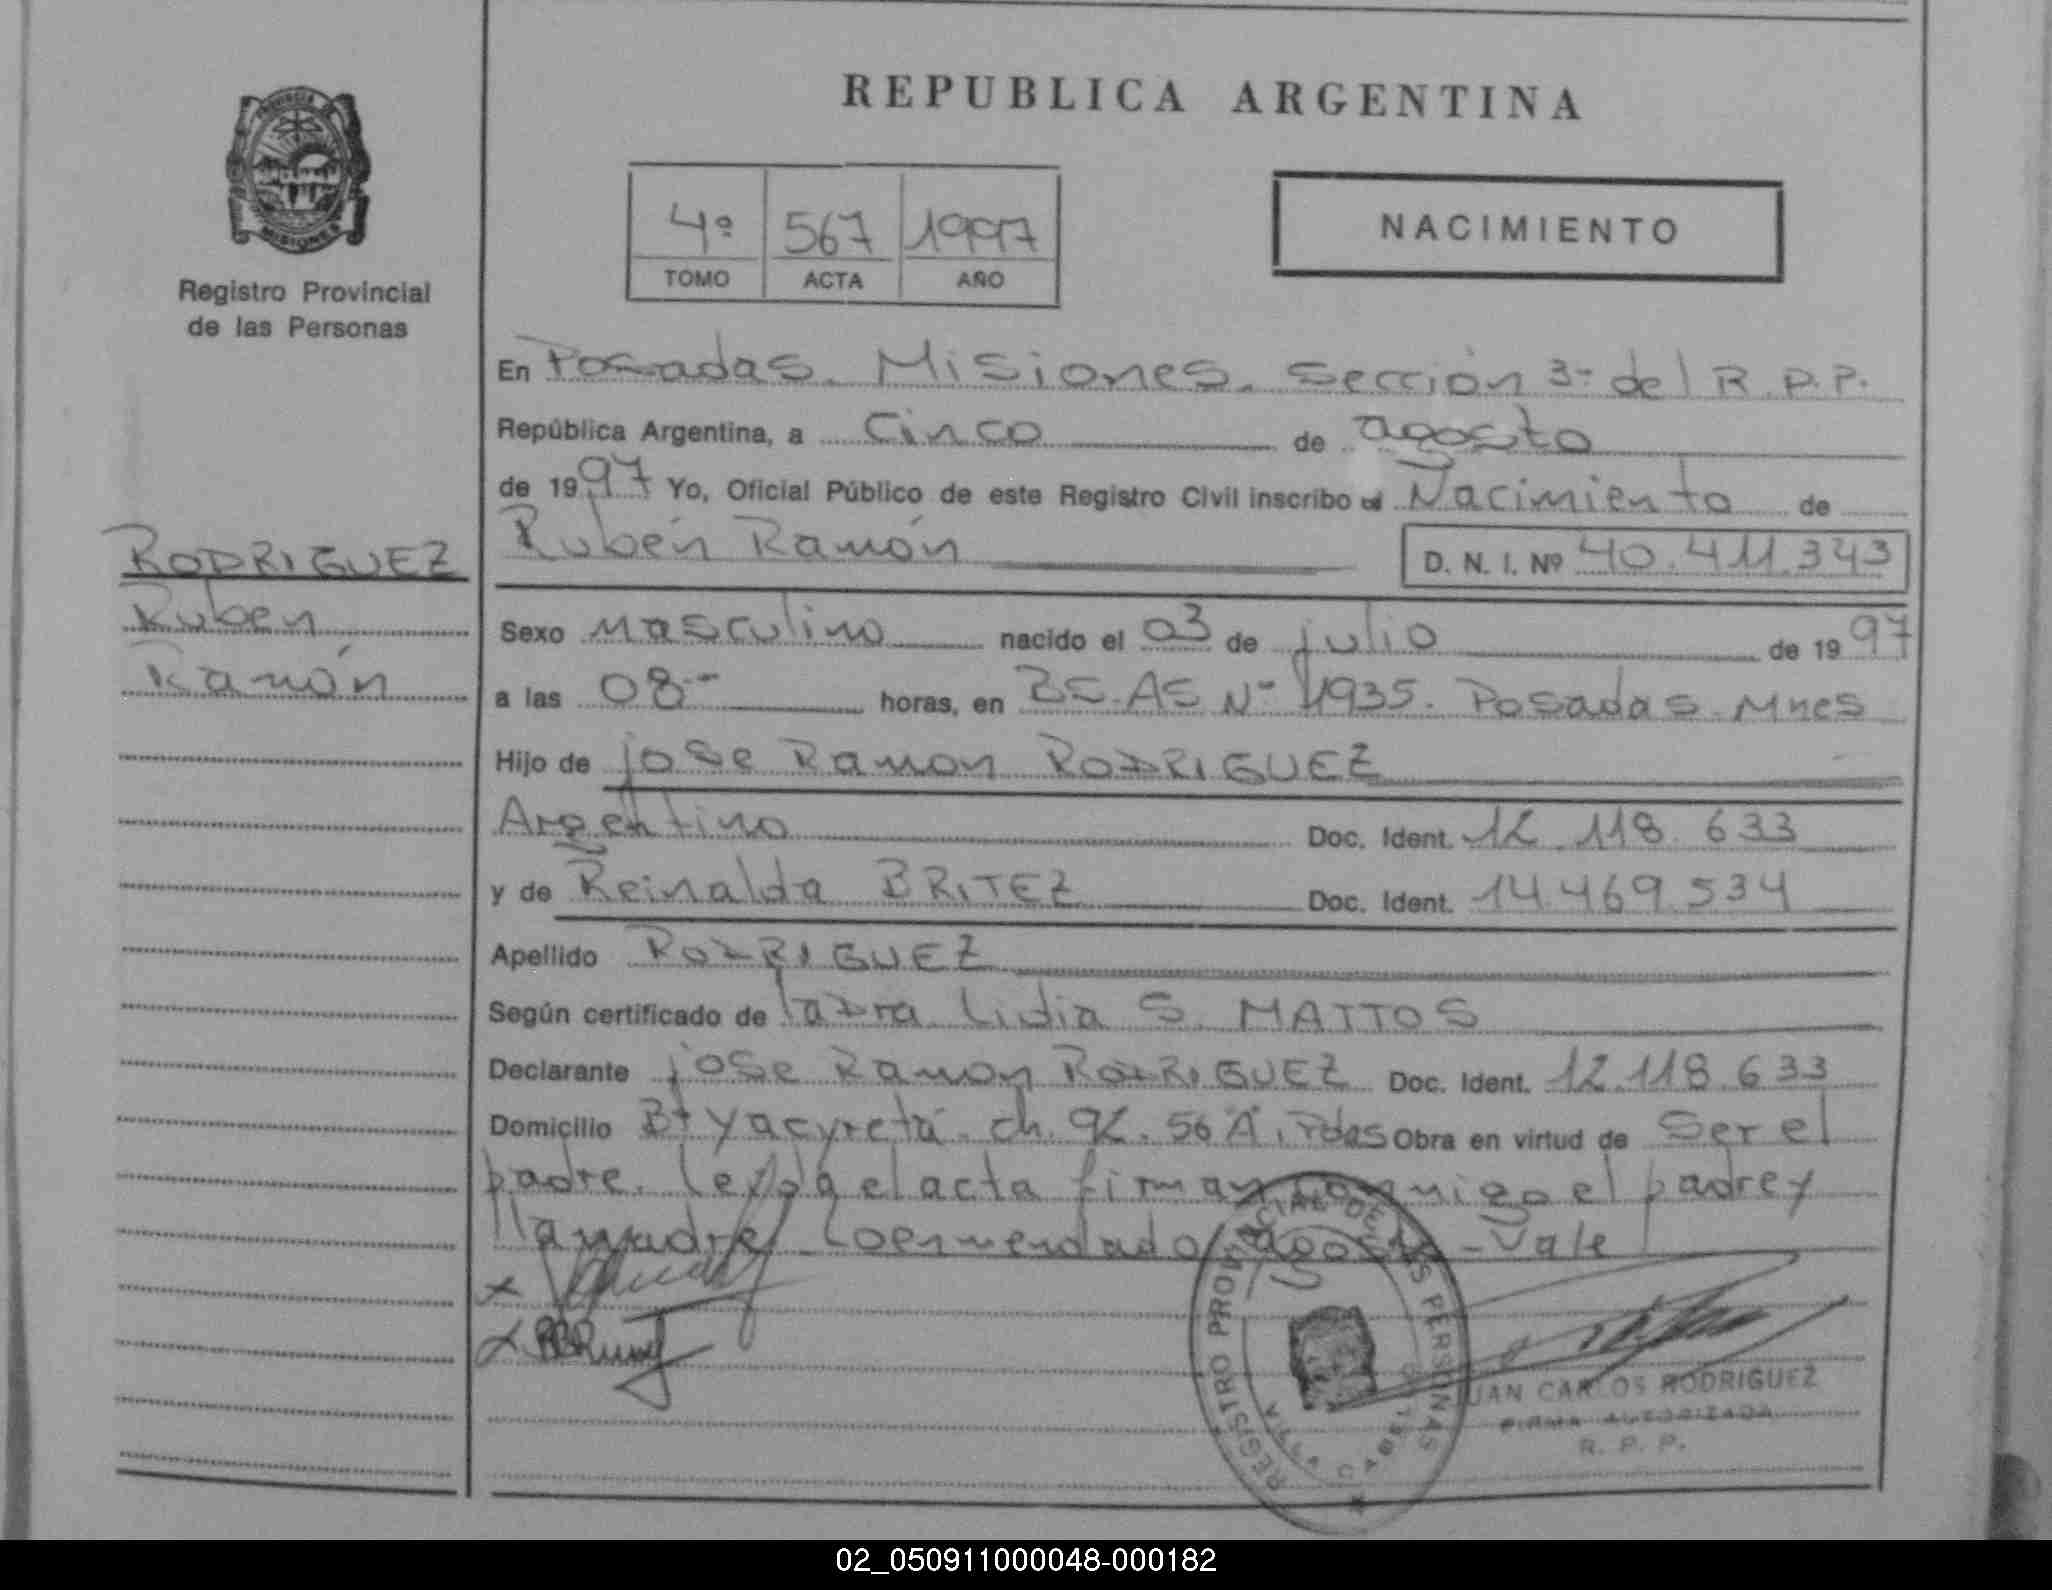 REPUBLICA ARGENTINA
PROVINCIA DE
MISIONES
Registro Provincial
de las Personas
4º 567 1997
TOMO ACTA AÑO
NACIMIENTO
En Posadas. Misiones. Sección 3ª del R.P.P.
República Argentina, a Cinco de agosto
de 1997 Yo, Oficial Público de este Registro Civil inscribo el Nacimiento de
Rubén Ramón D. N. I. Nº 40.411.343
RODRIGUEZ
Ruben
Ramón
Sexo masculino nacido el 03 de julio de 1997
a las 08 horas, en BS.AS Nº 1935. Posadas. Mnes
Hijo de jose Ramon RODRIGUEZ
Argentino Doc. Ident. 12.118.633
y de Reinalda BRITEZ Doc. Ident. 14.469.534
Apellido RODRIGUEZ
Según certificado de la Dra. Lidia S. MATTOS
Declarante jose Ramon RODRIGUEZ Doc. Ident. 12.118.633
Domicilio Bº Yacyretá. ch. 92. 56 "A". Pdas Obra en virtud de Ser el
padre. Leida el acta firman conmigo el padre y
la madre. Lo enmendado agosto - Vale
REGISTRO PROVINCIAL DE LAS PERSONAS
VILLA CABELLO
JUAN CARLOS RODRIGUEZ
FIRMA AUTORIZADA
R. P. P.
02_050911000048-000182